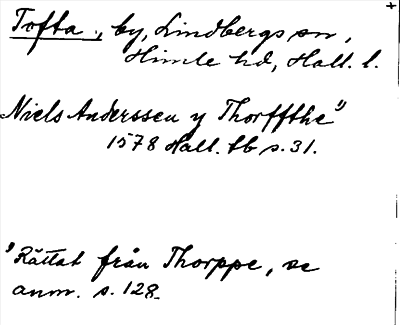 Tofta., by, Lindbergs sn,
Himle hd, Hall. l.
Niels Anderssen y Thorffthe¹⁾
1578 Hall. tb s. 31.
¹⁾ Rättat från Thorppe, se
anm. s. 128.